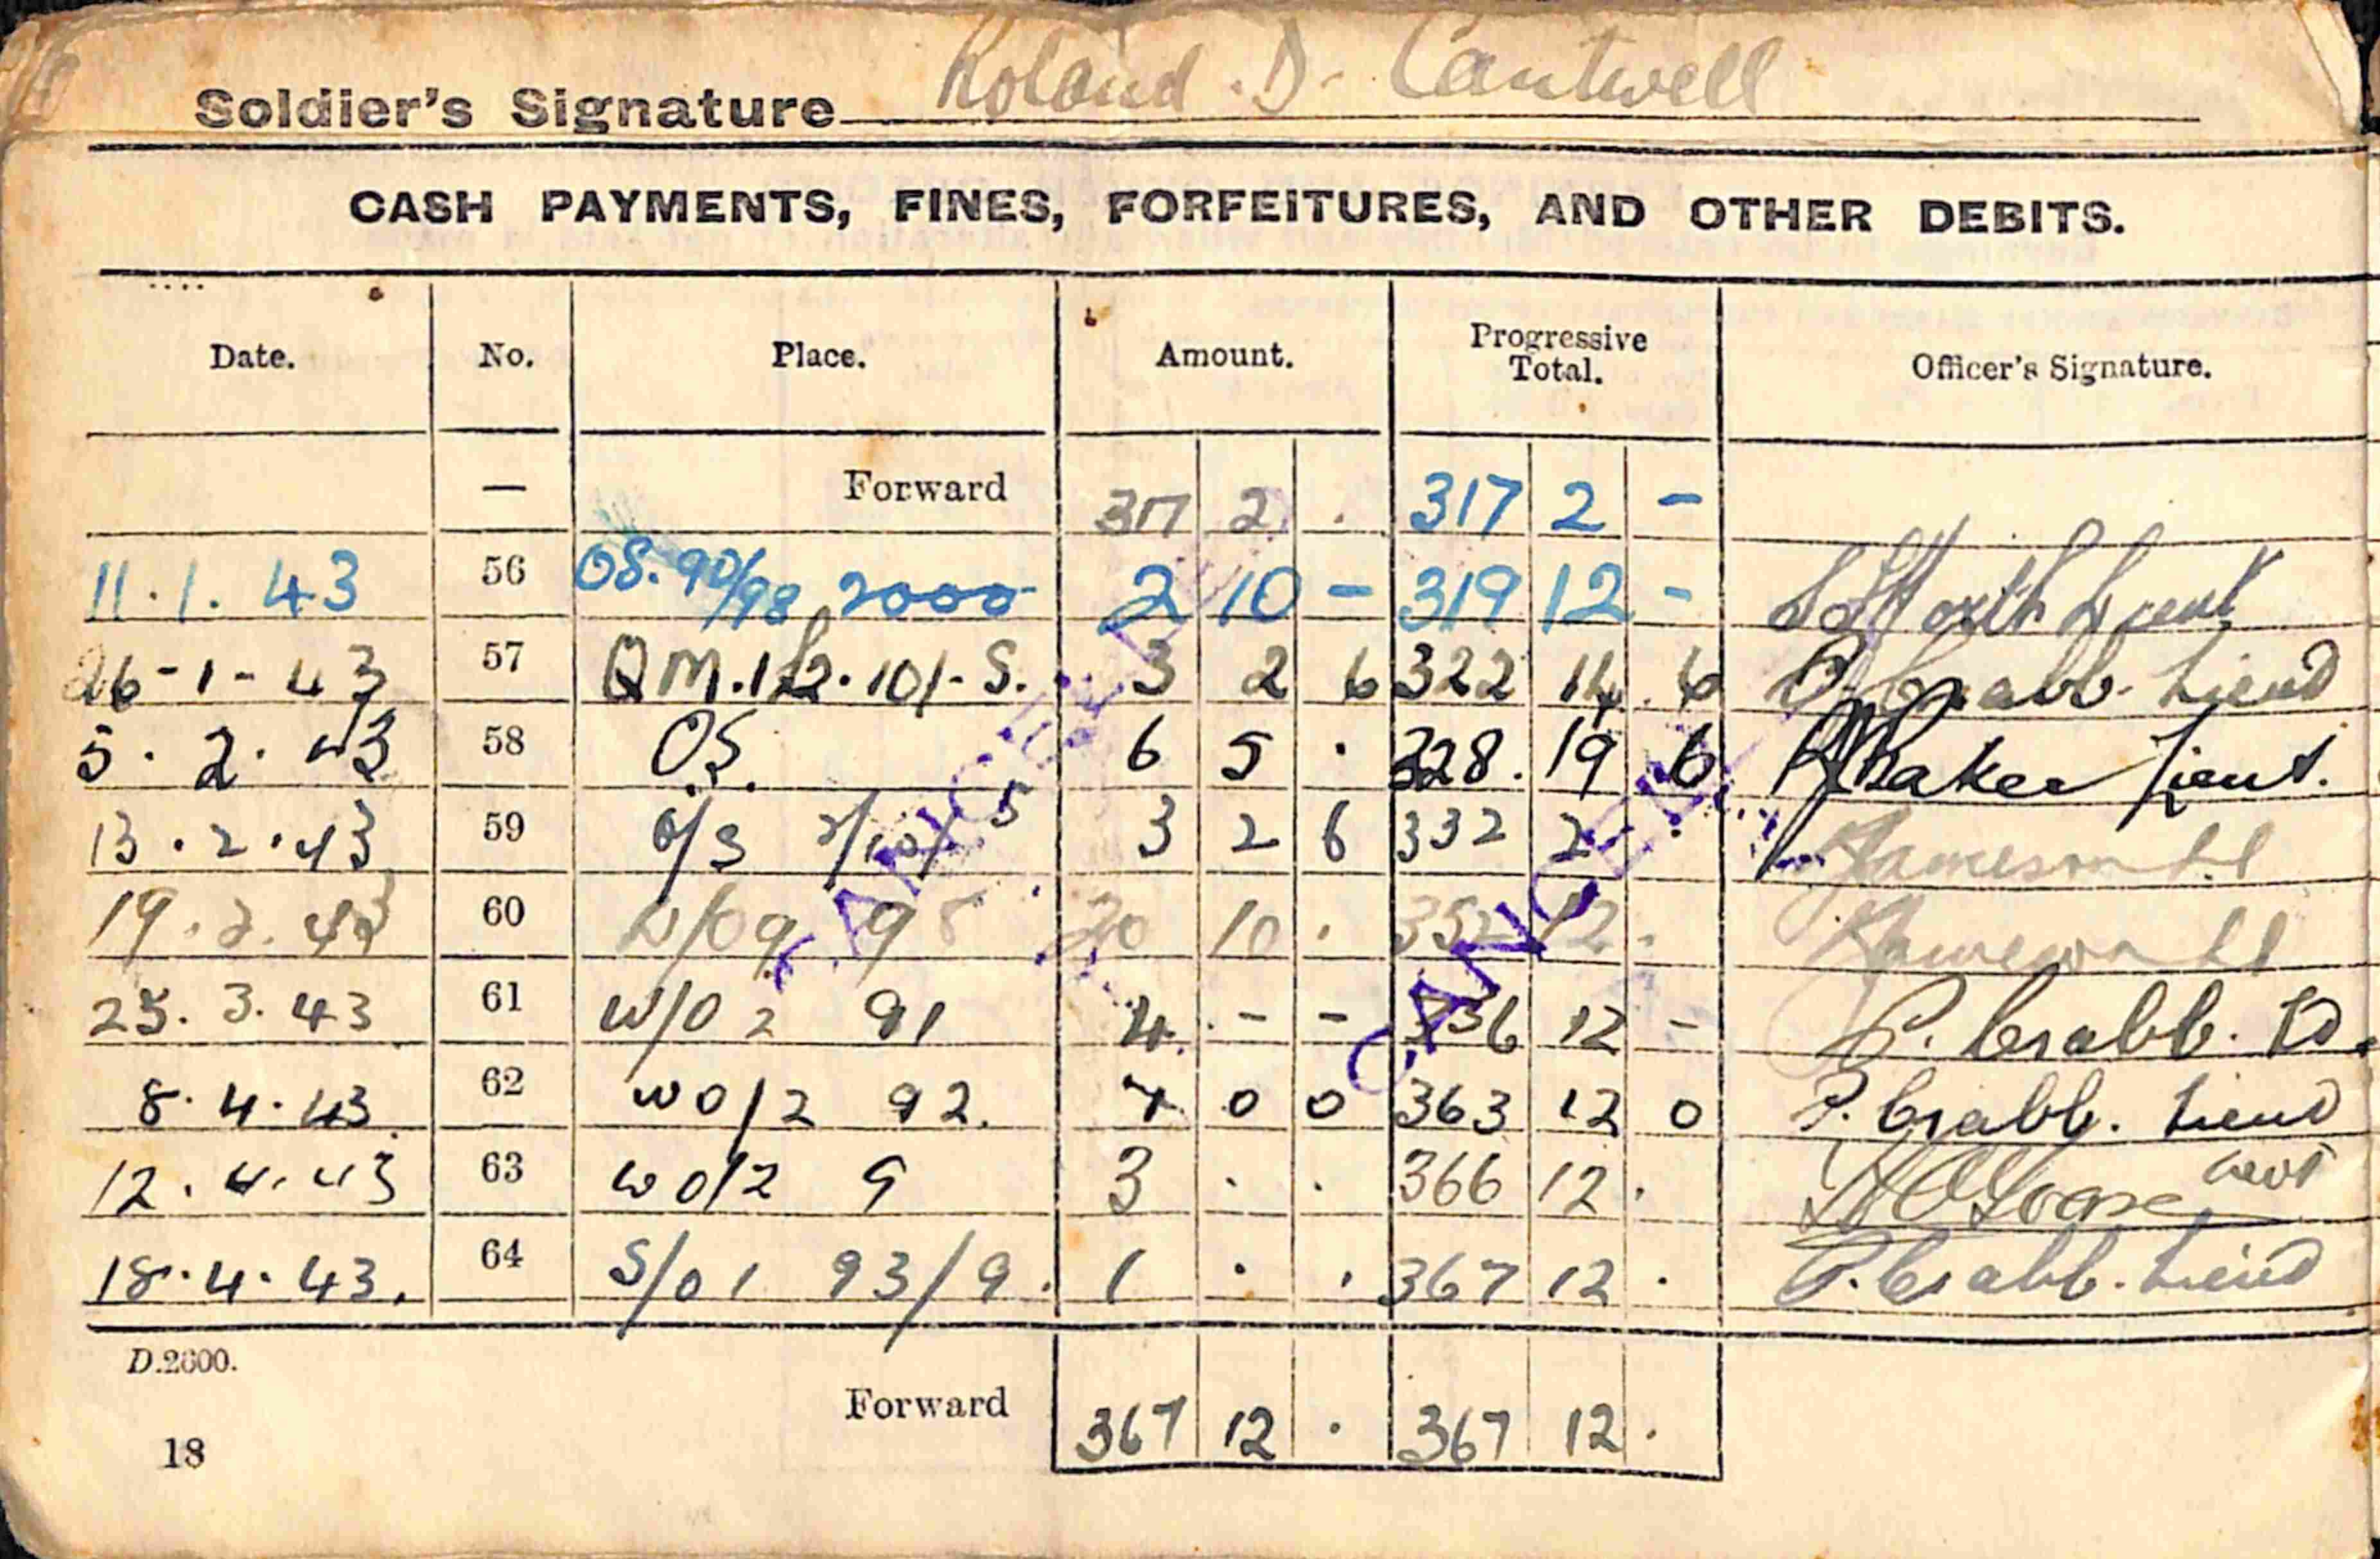 Soldier's Signature Roland . D. Cantwell
CASH PAYMENTS, FINES, FORFEITURES, AND OTHER DEBITS.
Date. No. Place. Amount. Progressive Total. Officer's Signature.
— Forward 317 2 . 317 2 -
11.1.43 56 OS. 90/98 2000 2 10 - 319 12 - Lieut
26-1-43 57 QM.1 2.101.S. 3 2 6 322 14 6 P. Crabb. Lieut
5.2.43 58 OS. 6 5 . 328. 19 6 Baker Lieut.
13.2.43 59 O/S 5 3 2 6 332 2 Jameson Lt
19.2.43 60 W/O 9 9 20 10 . 352 12 . Jameson Lt
25.3.43 61 W/O 2 91 4 - - 356 12 - P. Crabb. Lt.
8.4.43 62 WO/2 92. 7 0 0 363 12 0 P. Crabb. Lieut
12.4.43 63 WO/2 9 3 . . 366 12 .
18.4.43. 64 S/O 1 93/9. 1 . . 367 12 . P. Crabb. Lieut
CANCELLED
CANCELLED
D.2600.
Forward 367 12 . 367 12 .
18